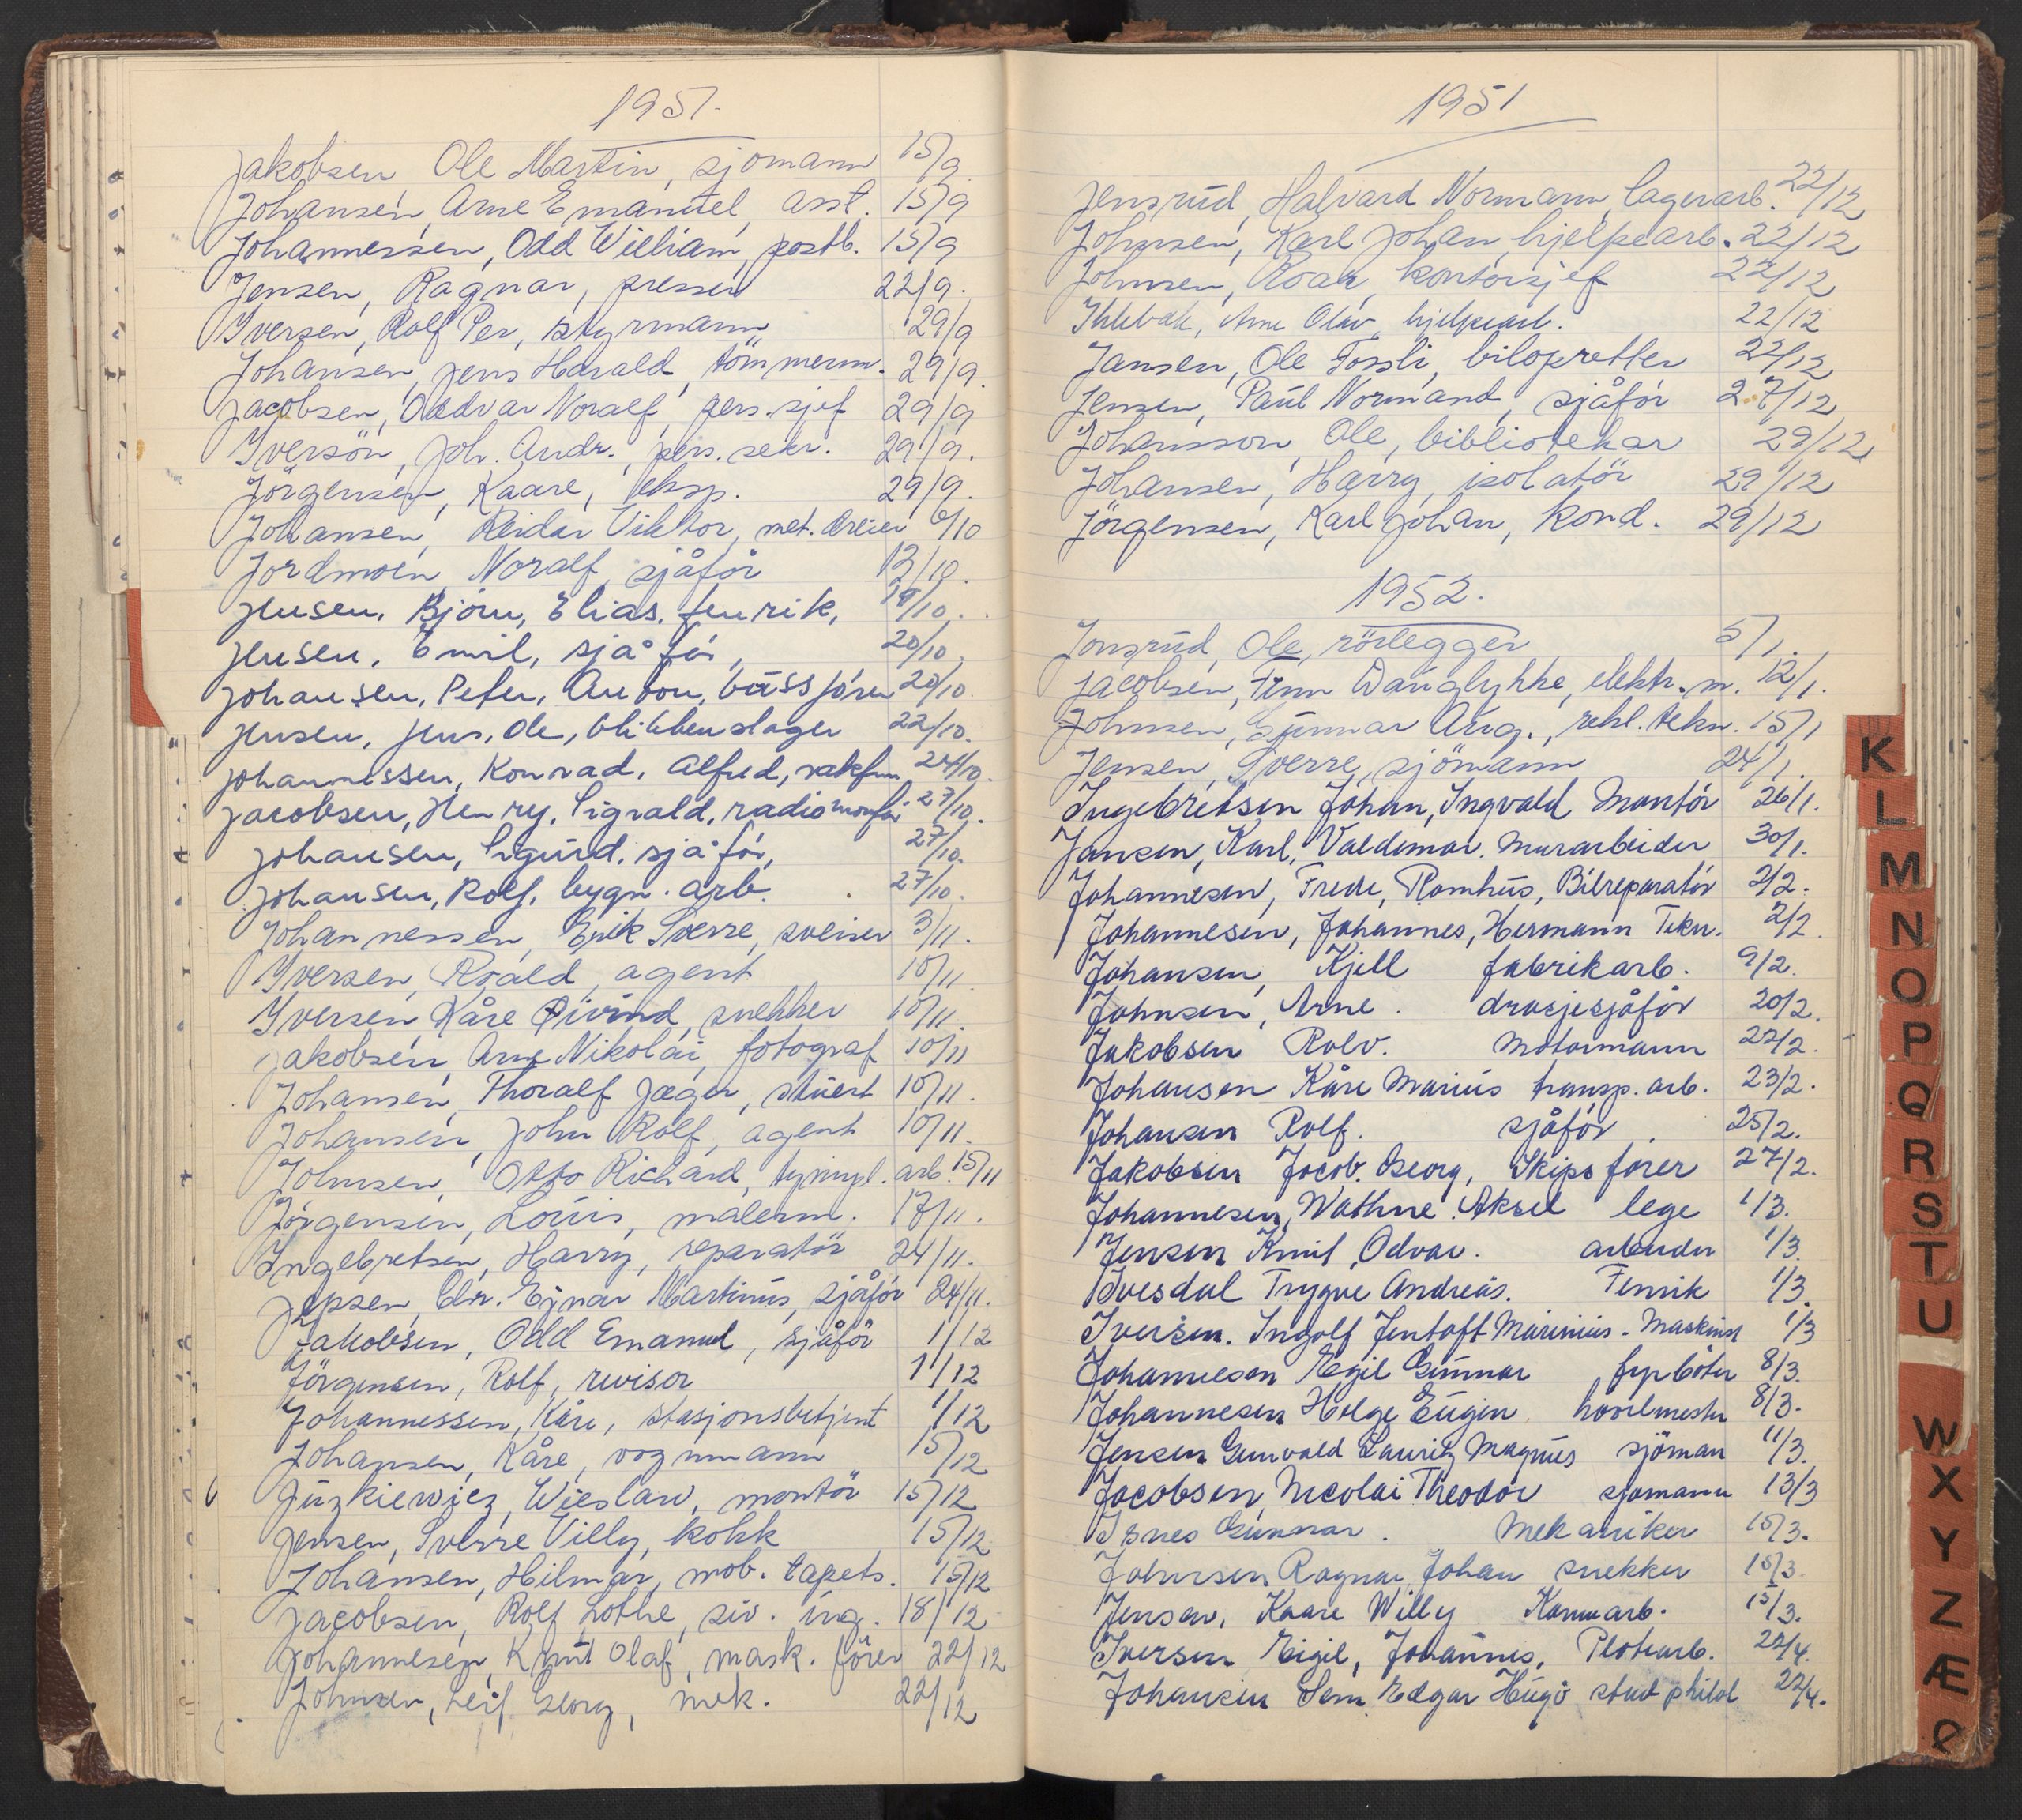 1951.
Jakobsen Ole Martin, sjömann 15/9
Johansen, Arne Emanuel, asst. 15/9
Johannessen, Odd William, postb. 15/9
Jensen, Ragnar, presser 22/9.
Iversen, Rolf Per, styrmann 29/9
Johansen, Jens Harald, tömmerm. 29/9.
Jacobsen, Oddvar Noralf, pers. sjef 29/9
Iversön, Joh. Andr., pers. sekr. 29/9.
Jörgensen, Kaare, eksp. 29/9.
Johansen, Reidar Viktor, met. dreier 6/10
Jordmoen, Noralf, sjåför 13/10.
Jensen, Björn, Elias, fenrik, 19/10.
Jensen, Emil, sjåför, 20/10.
Johansen, Peter, Anton, bussförer 20/10.
Jensen, Jens, Ole, blikkenslager 22/10.
Johannessen, Konrad, Alfred, vaktm 24/10.
Jacobsen, Henry, Sigvald, radiomontör 27/10.
Johansen, Sigurd, sjåför, 27/10.
Johansen, Rolf, bygn. arb. 27/10.
Johannessen, Erik Sverre, sveiser 3/11.
Iversen, Roald, agent 10/11.
Iversen, Kåre Øivind, snekker 10/11.
Jakobsen, Arne Nikolai, fotograf 10/11
Johansen, Thoralf Jæger, stuert 10/11.
Johansen, John Rolf, agent 10/11.
Johnsen, Otto Richard, arb. 15/11
Jörgensen, Louis, malerm. 17/11.
Ingebretsen, Harry, reparatör 24/11.
Jepsen, Chr. Ejnar Martinus, sjåför 24/11.
Jakobsen, Odd Emanuel, sjåför 1/12
Jörgensen, Rolf, revisor 1/12
Johannessen, Kåre, stasjonsbetjent 1/12
Johansen, Kåre, vognmann 15/12
Juzkiewicz, Wieslaw, montör 15/12
Jensen, Sverre Villy, kokk 15/12
Johansen, Hilmar, möb. tapets. 15/12
Jacobsen, Rolf Lothe, siv. ing. 18/12
Johannesen, Knut Olaf, mask. förer 22/12
Johnsen, Leif Georg, mek. 22/12
1951
Jensrud, Halvard Normann, lagerarb. 22/12
Johnsen, Karl Johan, hjelpearb. 22/12
Johnsen, Roar, kontorsjef 22/12
Ihlebak, Arne Olav, hjelpearb. 22/12
Jansen, Ole Fossli, biloppretter 22/12
Jensen, Paul Normand, sjåför 27/12
Johansson, Ole, bibliotekar 29/12
Johansen, Harry, isolatör 29/12
Jörgensen, Karl Johan, kond. 29/12
1952.
Jonsrud, Ole, rörlegger 5/1.
Jacobsen, Finn Wanglykke, elektr. m. 12/1.
Johnsen, Gunnar Aug., rekl. tekn. 15/1
Jensen, Sverre, sjömann 24/1.
Ingebretsen Johan, Ingvald Montör 26/1.
Jansen, Karl, Valdemar. Murarbeider 30/1.
Johannesen, Frede, Romhus, Bilreparatör 2/2.
Johannesen, Johannes, Hermann Tekn. 2/2.
Johansen, Kjell fabrikarb. 9/2.
Johnsen, Arne. drosjesjåför 20/2.
Jakobsen Rolv. Motormann 22/2.
Johansen Kåre Marius transp. arb. 23/2.
Johansen Rolf. sjåför 25/2.
Jakobsen Jacob. Georg, Skipsförer 27/2.
Johannesen, Wathne. Aksel lege 1/3.
Jensen Knut, Odvar. arbeider 1/3.
Ivesdal Trygve Andreas. Fenrik 1/3.
Iversen. Ingolf Jentoft Marinius. Maskinst 1/3
Johannesen Egil Gunnar fyrböter 8/3.
Johannesen Helge Eugen hovelmester 8/3.
Jensen Gunvald Lauritz Magnus sjöman 11/3.
Jacobsen Nicolai Theodor sjømann 13/3
Isnes Gunnar. Mekaniker 15/3.
Johnsen Ragnar Johan snekker 15/3.
Jensen, Kaare Willy Komm arb. 15/3.
Iversen Eigil, Johannes, Platearb. 22/4.
Johansen Sem Edgar Hugo stud philol 22/4.
K
L
M
N
O
P
Q
R
S
T
U
W
X
Y
Z
Æ
Ø